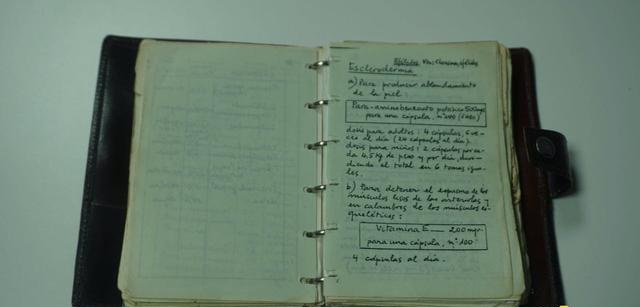 Esclerodermia
a) Para producir ablandamiento
de la piel:
Para-aminobenzoato potásico 500 mgr
para una cápsula, nº
dosis para adultos: 4 cápsulas, 6 ve-
ces al día (24 cápsulas al día).
dosis para niños: 2 cápsulas por ca-
da 4,5 Kg de peso y por día, divi-
diendo el total en 6 tomas igua-
les.
b) Para detener el espasmo de los
músculos lisos de las arteriolas y
en calambres de los músculos es-
queléticos:
Vitamina E — 200 mgr.
para una cápsula, nº 100
4 cápsulas al día.